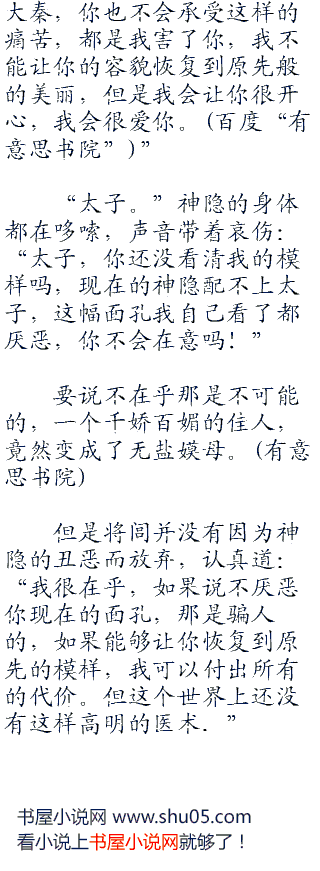 大秦，你也不会承受这样的
痛苦，都是我害了你，我不
能让你的容貌恢复到原先般
的美丽，但是我会让你很开
心，我会很爱你。(百度“有
意思书院”)”
“太子。”神隐的身体
都在哆嗦，声音带着哀伤：
“太子，你还没看清我的模
样吗，现在的神隐配不上太
子，这幅面孔我自己看了都
厌恶，你不会在意吗！”
要说不在乎那是不可能
的，一个千娇百媚的佳人，
竟然变成了无盐嫫母。(有意
思书院)
但是将闾并没有因为神
隐的丑恶而放弃，认真道：
“我很在乎，如果说不厌恶
你现在的面孔，那是骗人
的，如果能够让你恢复到原
先的模样，我可以付出所有
的代价。但这个世界上还没
有这样高明的医术．”
书屋小说网 www.shu05.com
看小说上书屋小说网就够了！